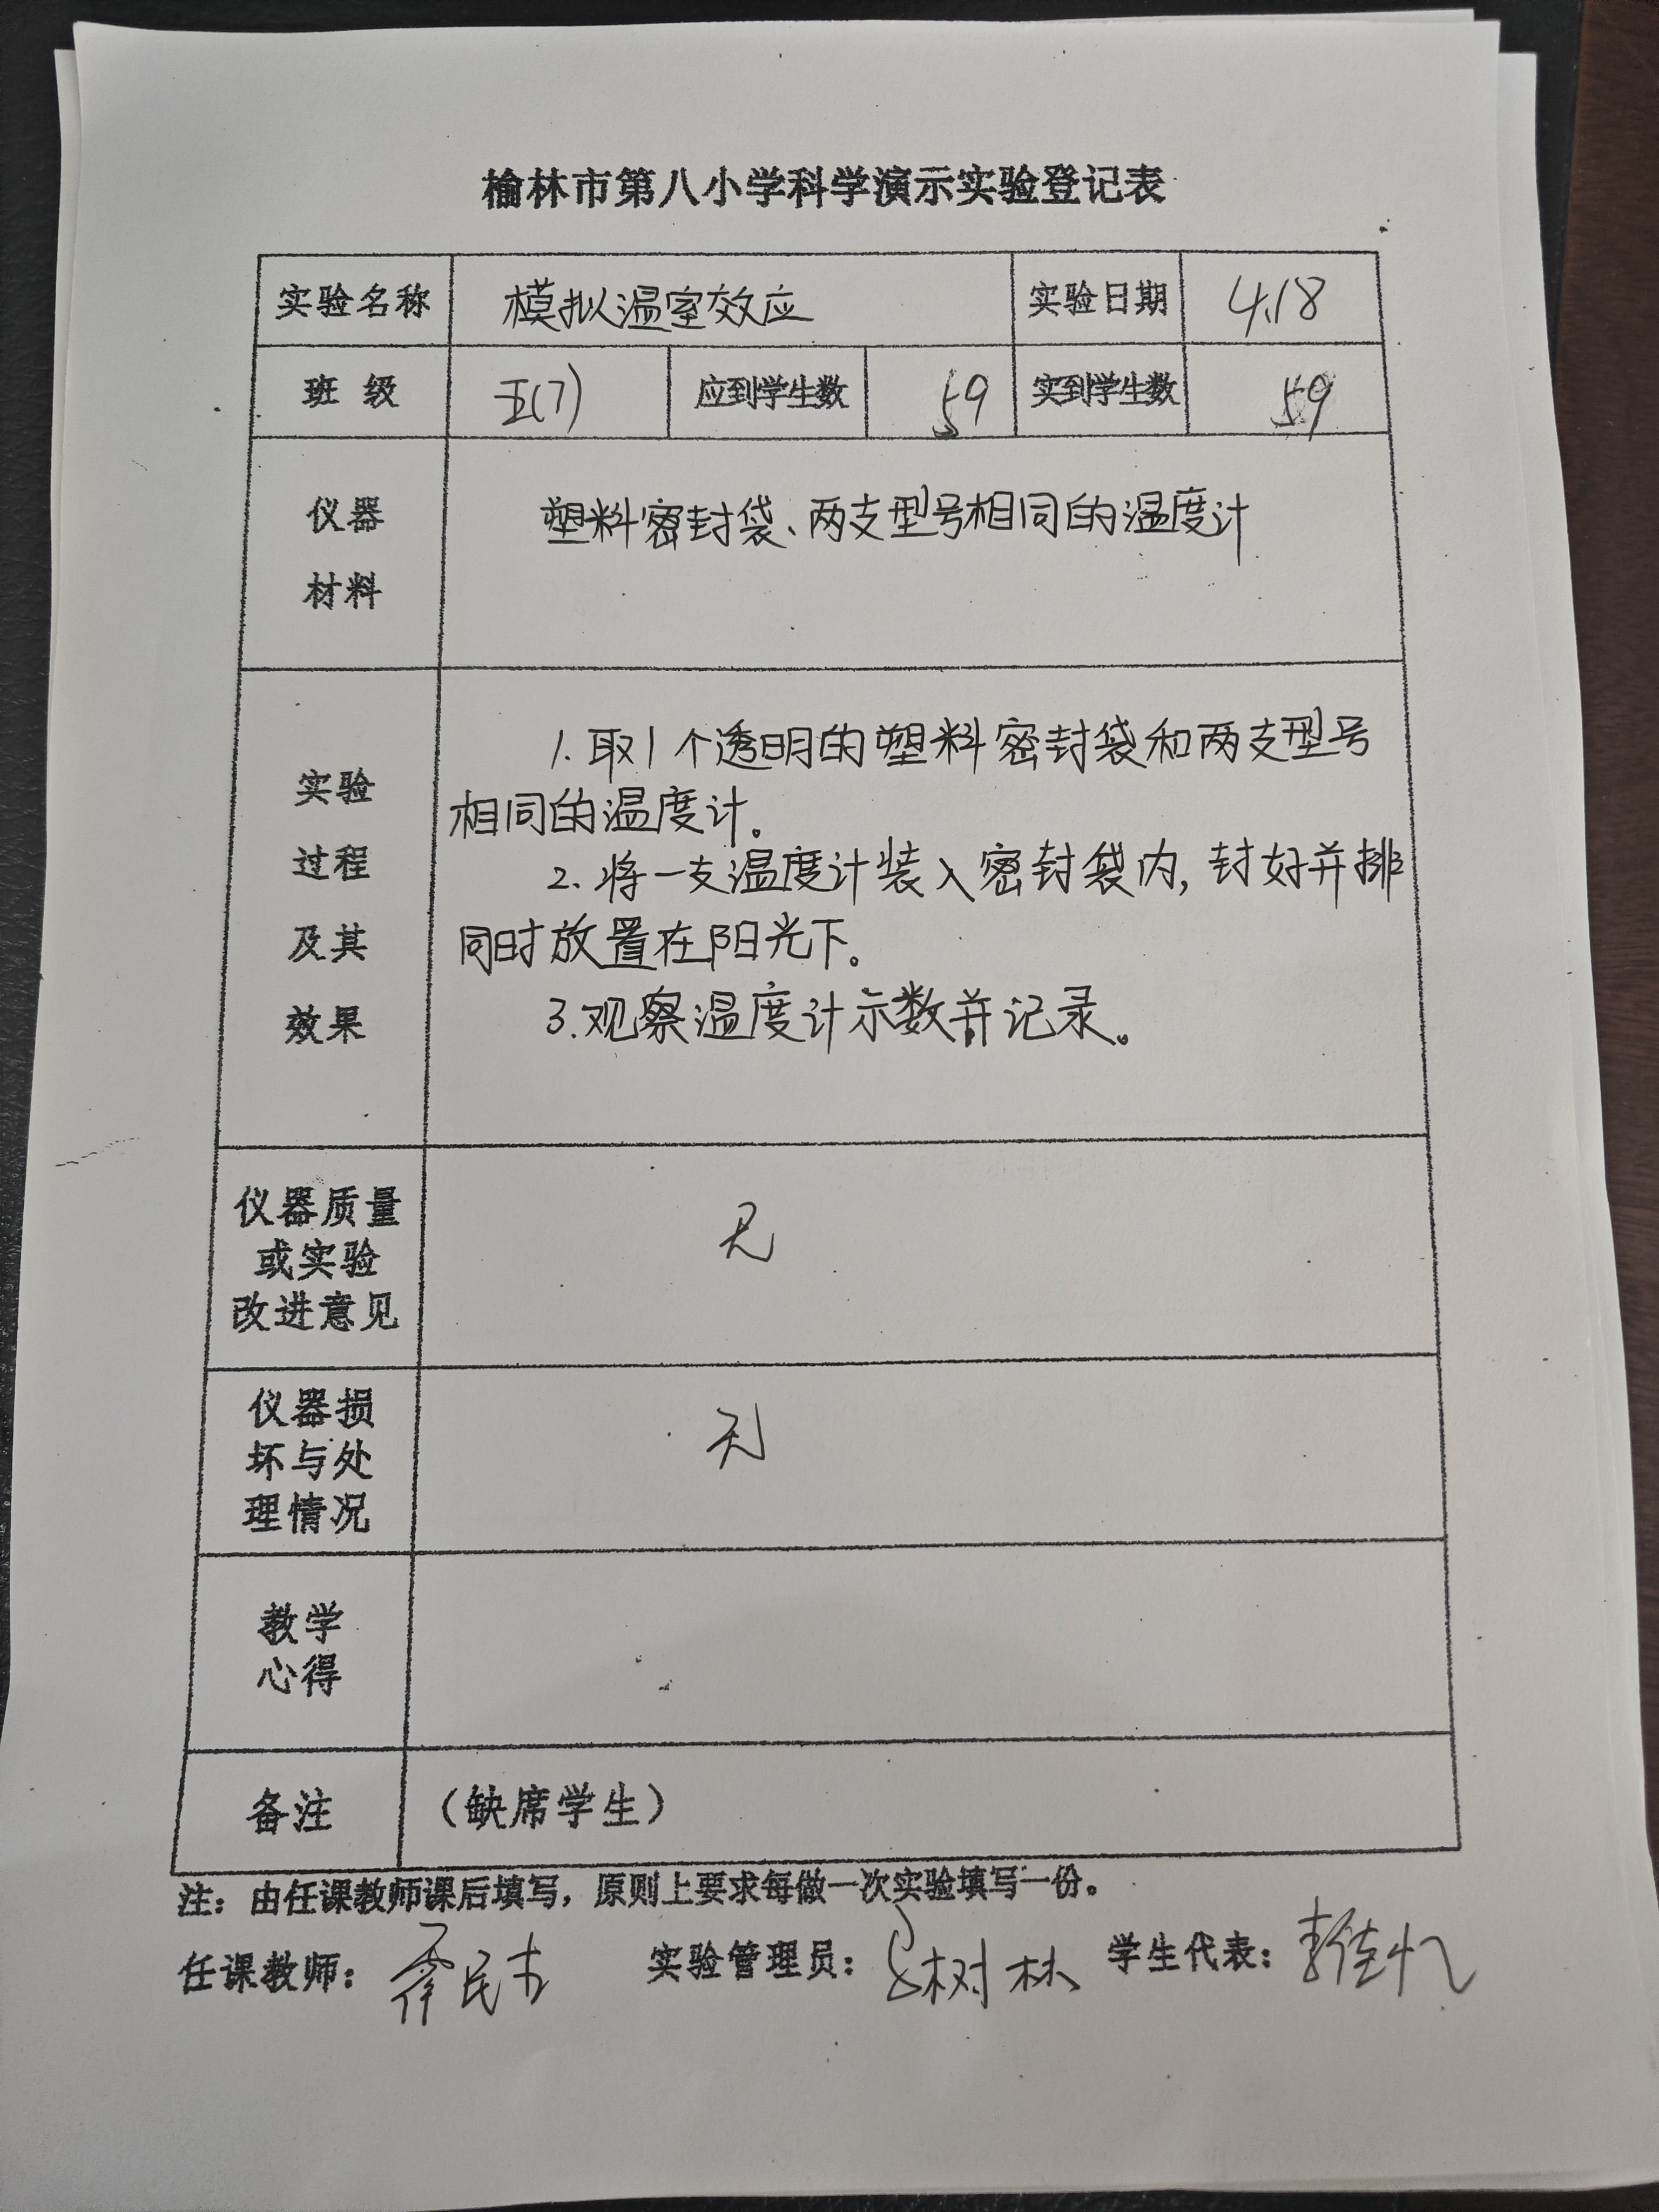 榆林市第八小学科学演示实验登记表
实验名称 模拟温室效应 实验日期 4.18
班级 五(7) 应到学生数 59 实到学生数 59
仪器
材料
塑料密封袋、两支型号相同的温度计
实验
过程
及其
效果
1. 取1个透明的塑料密封袋和两支型号
相同的温度计。
2. 将一支温度计装入密封袋内, 封好并排
同时放置在阳光下。
3. 观察温度计示数并记录。
仪器质量
或实验
改进意见
无
仪器损
坏与处
理情况
无
教学
心得
备注 (缺席学生)
注：由任课教师课后填写，原则上要求每做一次实验填写一份。
任课教师： 实验管理员： 树林 学生代表：